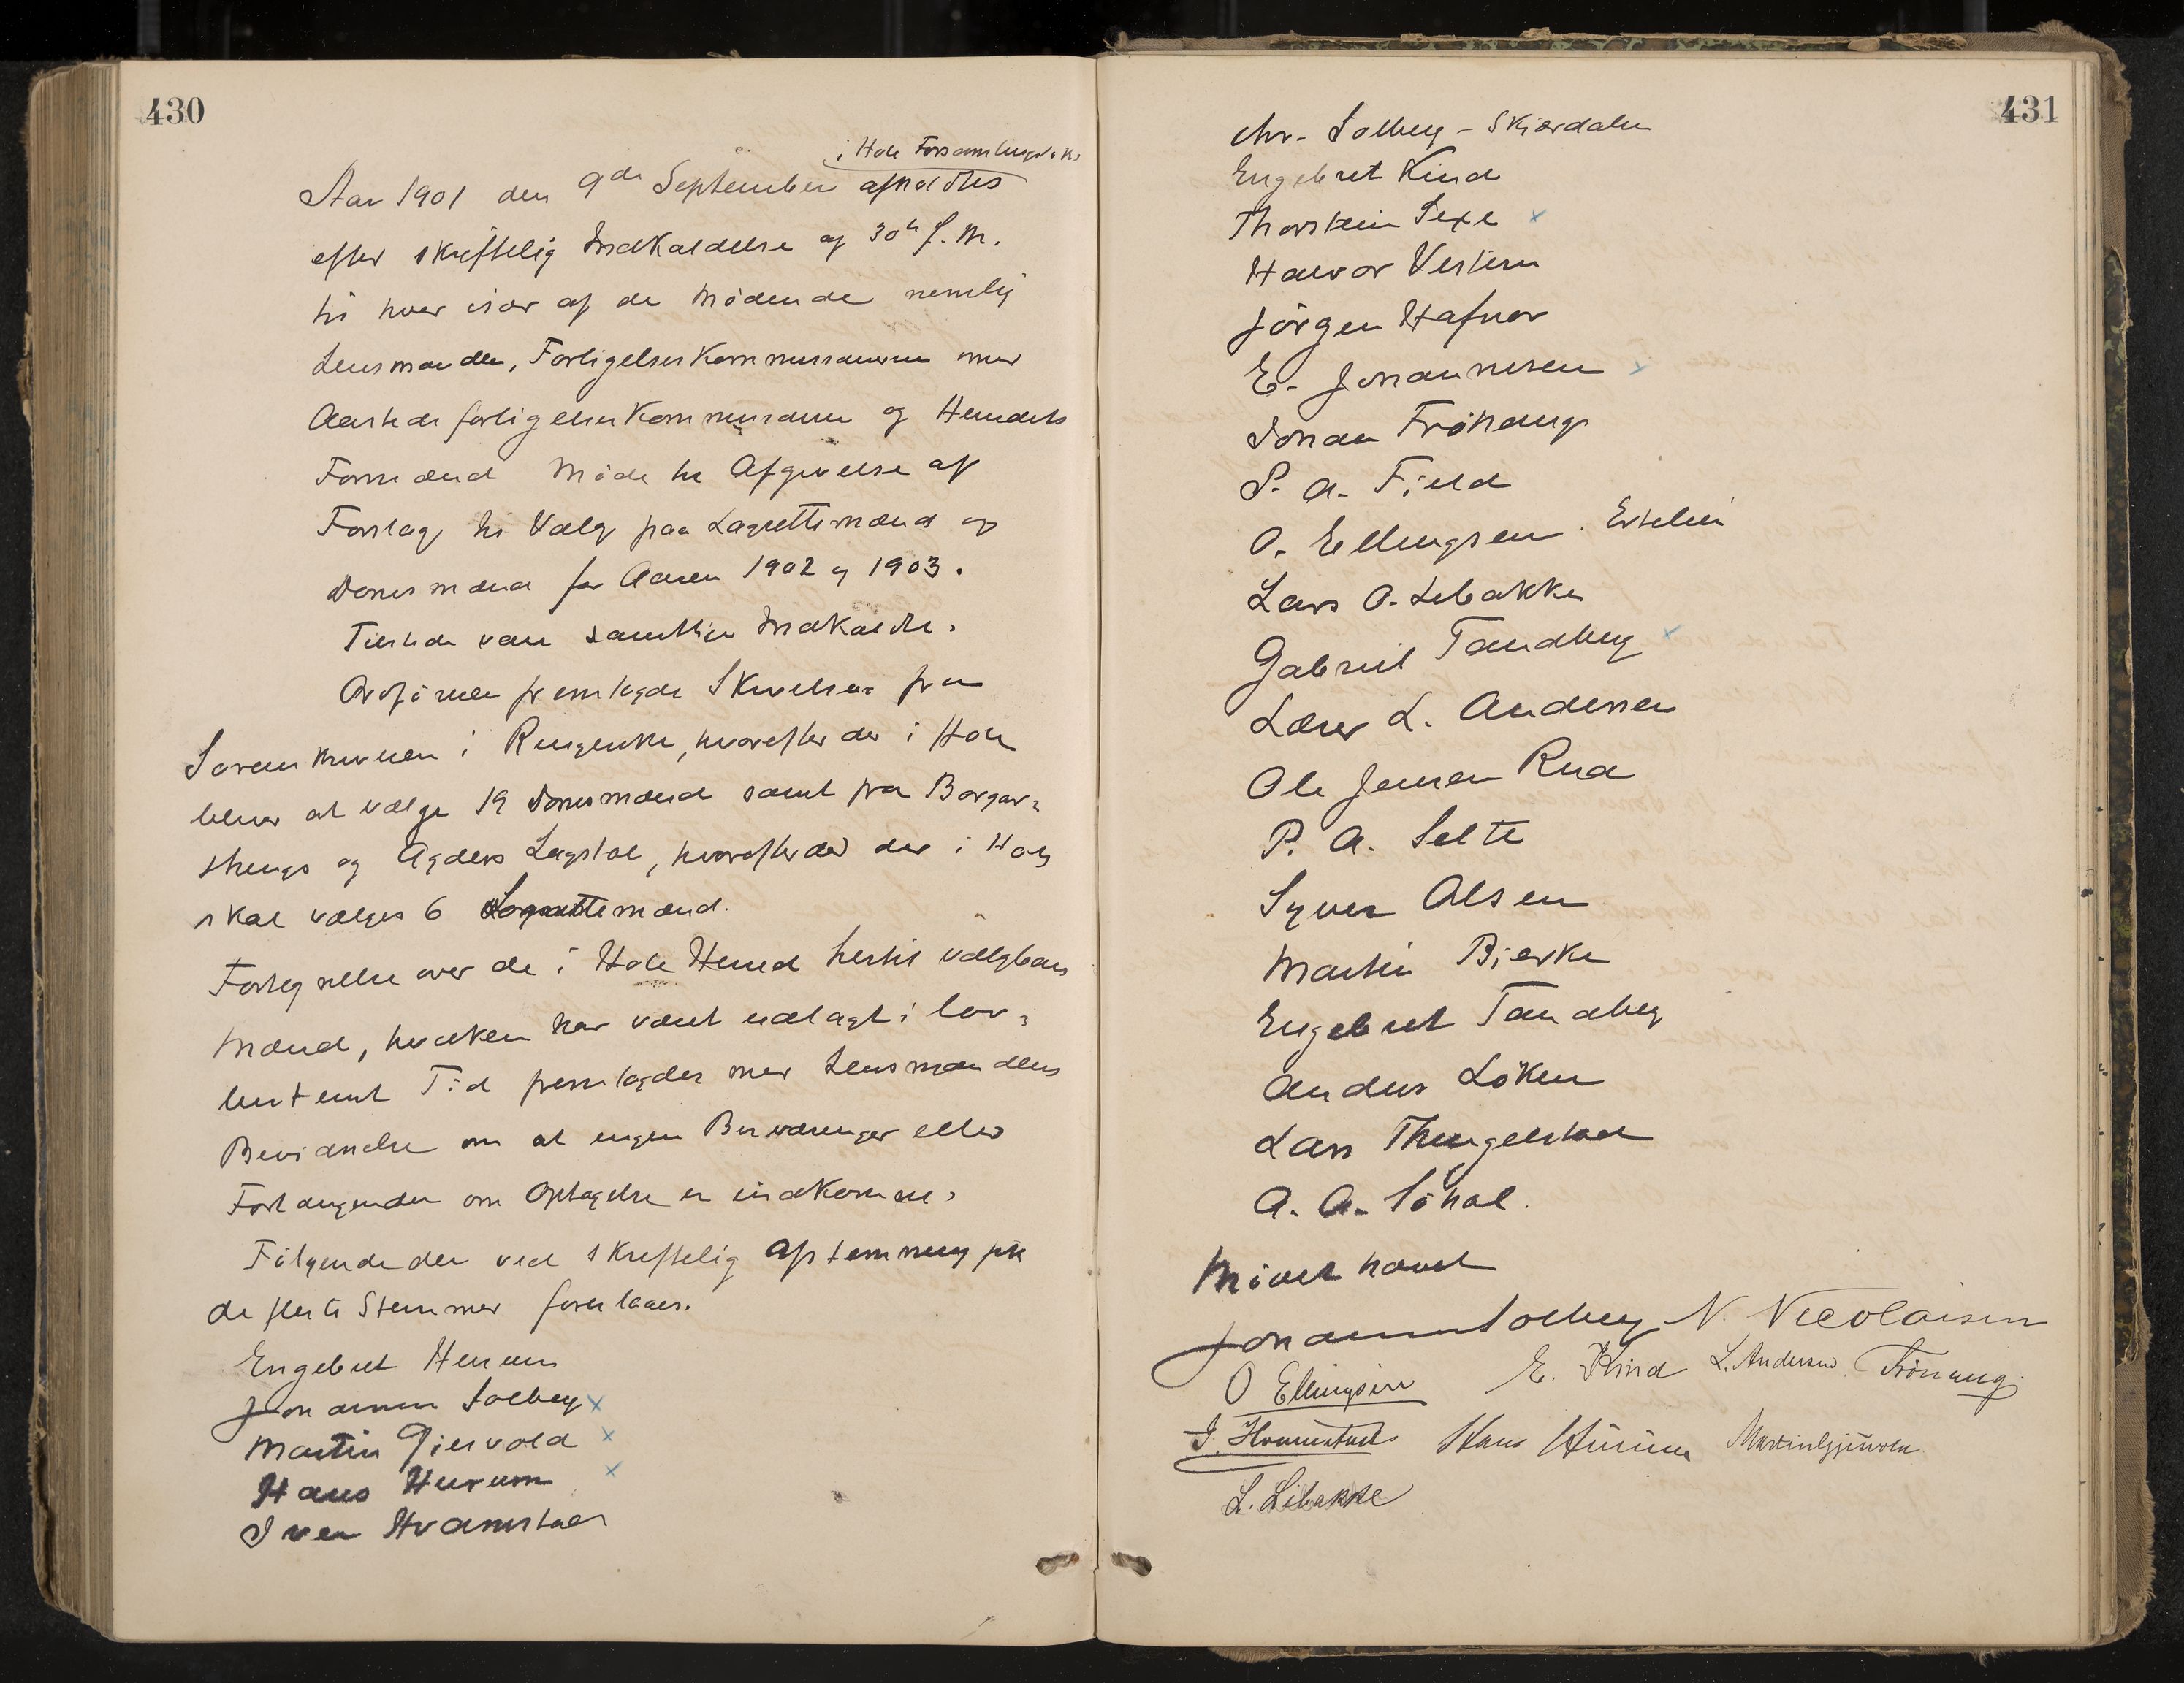 430
i Hole Forsamlingslok.
Aar 1901 den 9de September afholdtes
efter skriftelig Indkaldelse af 30te f. M.
til hver især af de Mødende nemlig
Lensmanden, Forligelseskommissærerne med
Forligelseskommissærer og Herredets
Formænd Møde til Afgivelse af
Forslag til Valg paa Lagrettemænd og
Domsmænd for Aaren 1902 og 1903.
Tilstede vare samtlige Indkaldte.
Ordføreren fremlagde Skrivelser fra
Sorenskriveren i Ringerike, hvorefter der i Hole
bliver at vælge 19 Domsmænd samt fra Borgar-
things og Agders Lagstol, hvorefter der i Hole
skal vælges 6 Lagrettemænd.
Fortegnelse over de i Hole Herred hertil valgbare
Mænd, hvilken har været udlagt i lov-
bestemt Tid fremlagdes med Lensmandens
Bevidnelse om at ingen Besværinger eller
Forlangender om Optagelse er indkomne.
Følgende der ved skriftelig Afstemning fik
de fleste Stemmer foreslaaes.
Engebret Hurum
Johannes Solberg x
Martin Gjesvold x
Hans Hurum x
Iver Hvamstad
431
Chr. Solberg - Skjærdalen
Engebret Kind
Thorstein Sexe x
Halvor Vestern
Jörgen Hafnor
E. Johannesen x
Johan Fröhaug
P. A. Field
O. Ellingsen Estelien
Lars O. Libakke
Gabriel Tandberg x
Lærer L. Andersen
Ole Jensen Rud
P. A. Selte
Syver Olsen
Martin Bjerke
Engebret Tandberg
Anders Löken
Lars Thingelstad
A. A. Söhol.
Mödet hævet
Johannes Solberg N. Nicolaisen
O Ellingsen E. Kind L. Andersen Fröhaug.
I. Hvamstad Hans Hurum Martin Gjesvold
L. Libakke